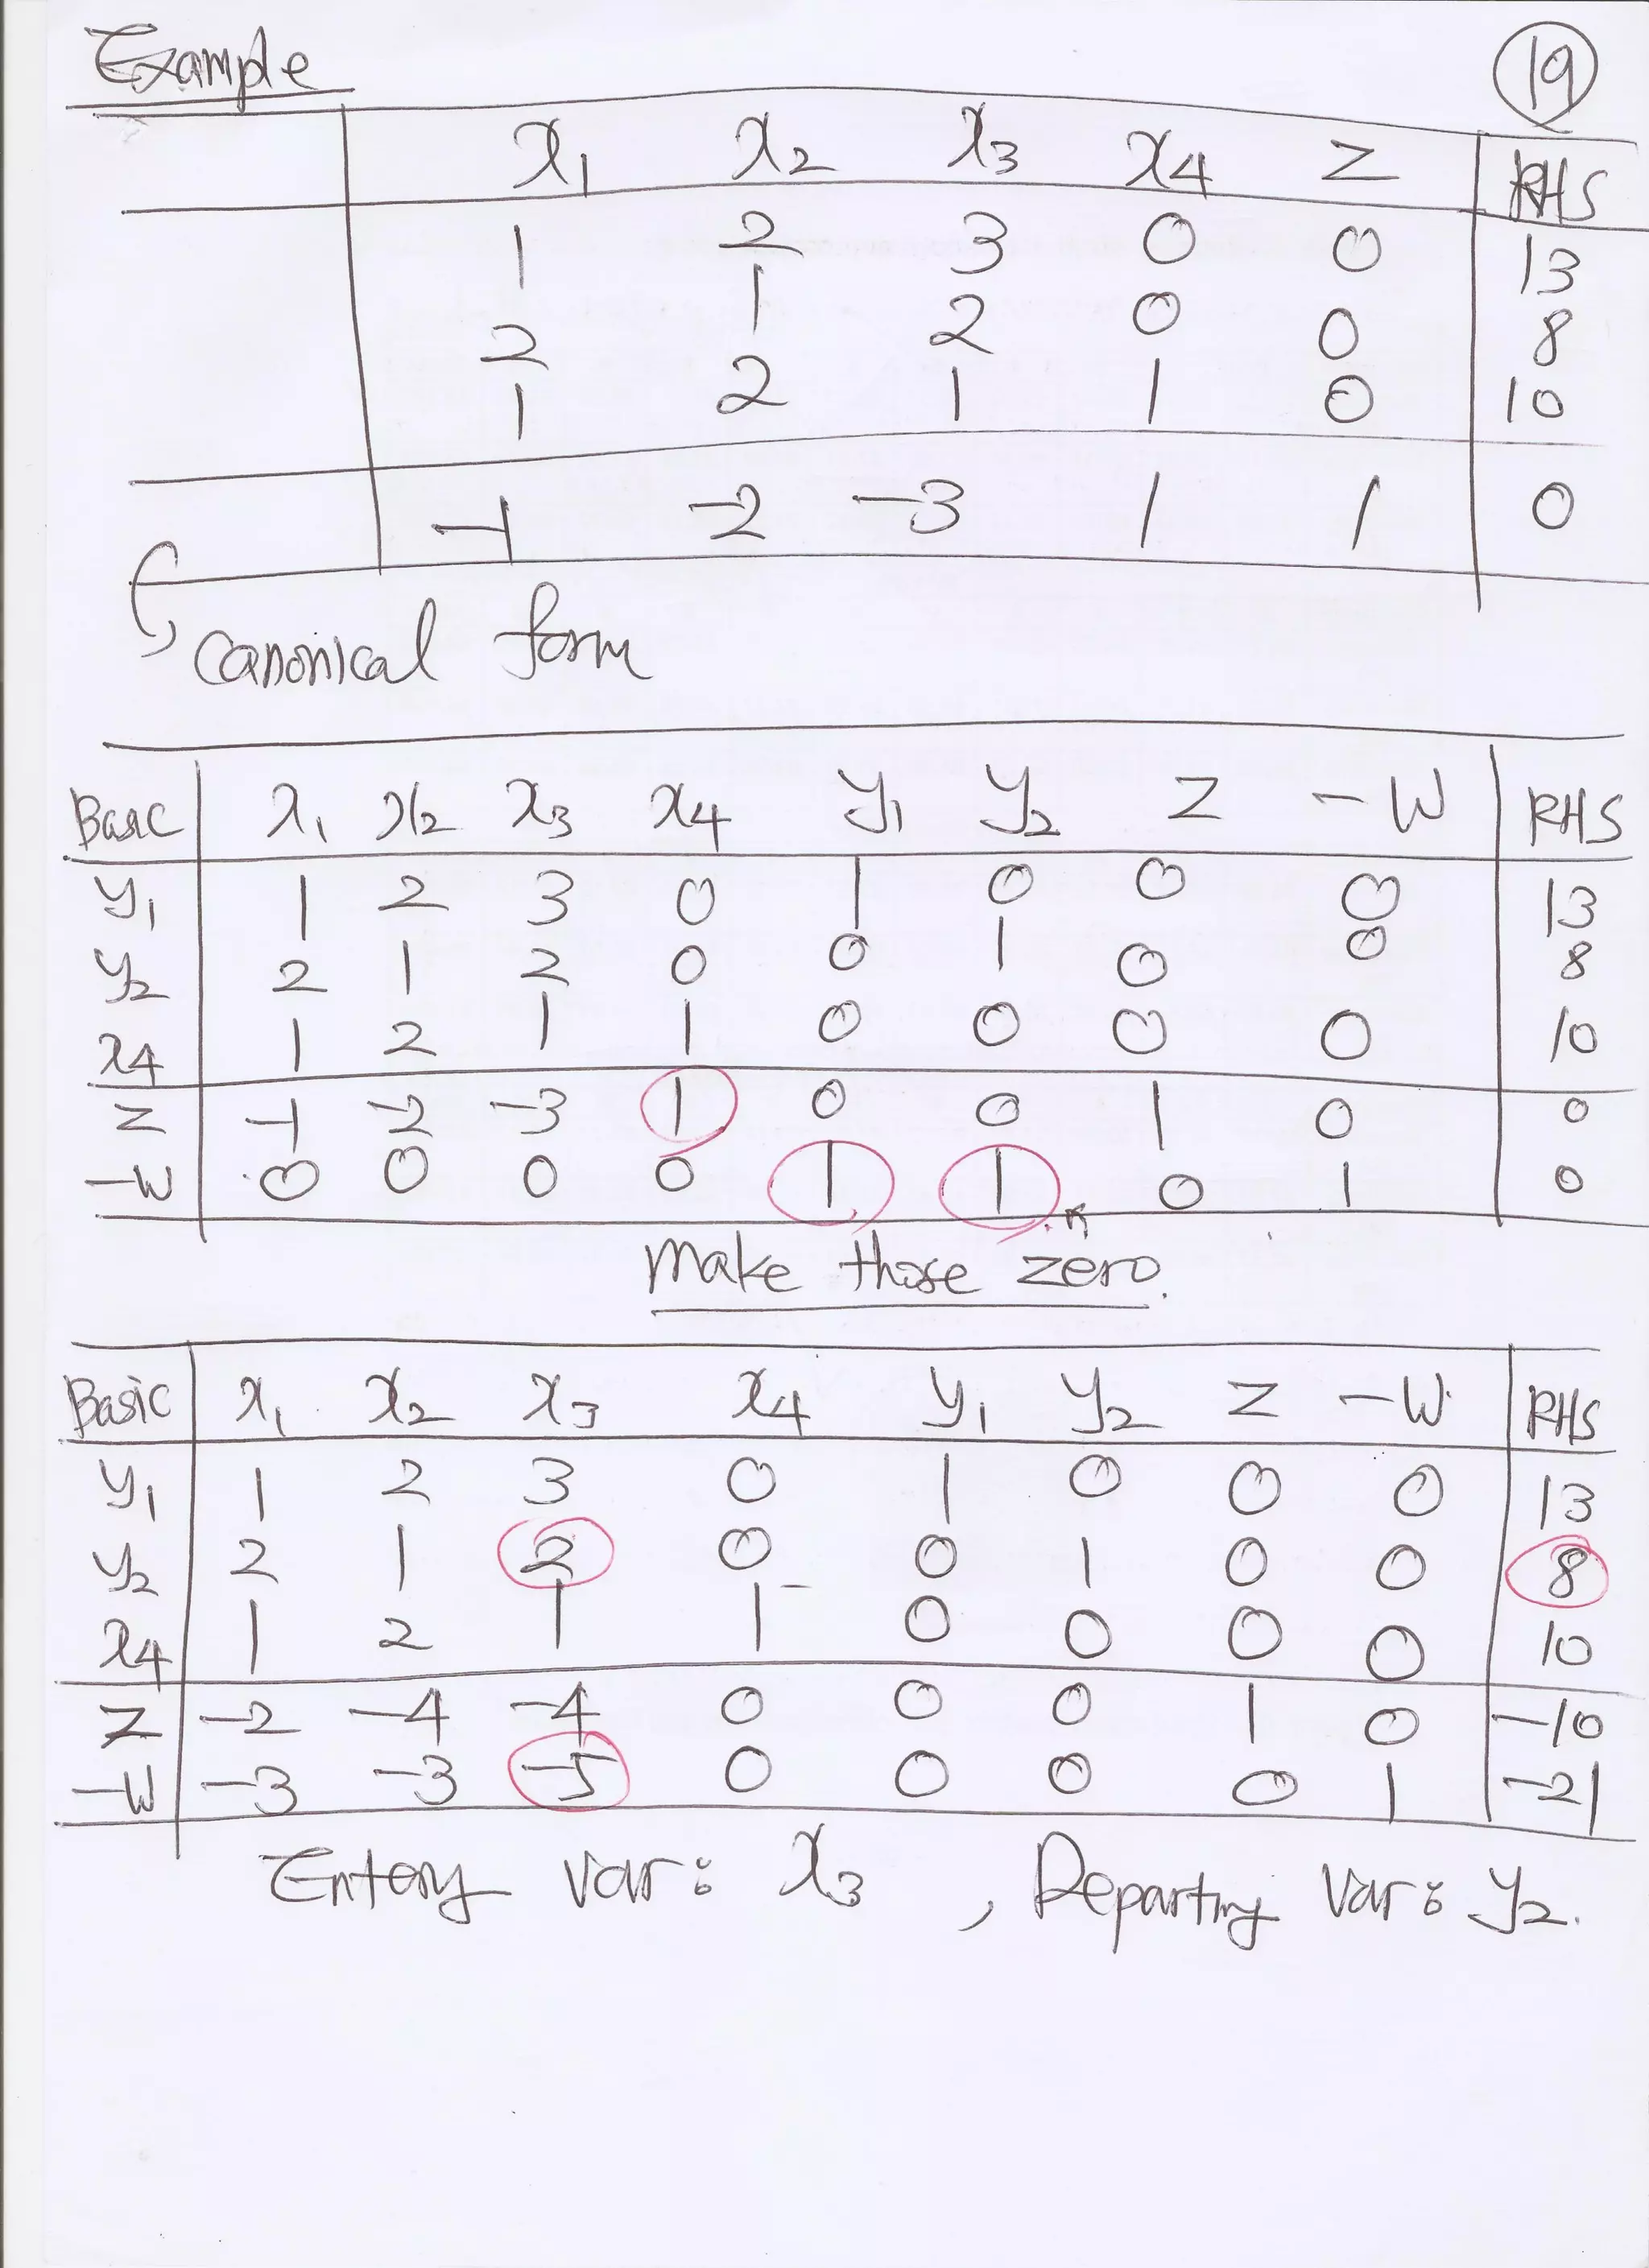 Example
19
x1 x2 x3 x4 z RHS
1 2 3 0 0 13
2 1 2 0 0 8
1 2 1 1 0 10
-1 -2 -3 1 1 0
canonical form
Basic x1 x2 x3 x4 y1 y2 z -w RHS
y1 1 2 3 0 1 0 0 0 13
y2 2 1 2 0 0 1 0 0 8
x4 1 2 1 1 0 0 0 0 10
z -1 -2 -3 1 0 0 1 0 0
-w 0 0 0 0 1 1 0 1 0
make those zero.
Basic x1 x2 x3 x4 y1 y2 z -w RHS
y1 1 2 3 0 1 0 0 0 13
y2 2 1 2 0 0 1 0 0 8
x4 1 2 1 1 0 0 0 0 10
z -2 -4 -4 0 0 0 1 0 -10
-w -3 -3 -5 0 0 0 0 1 -21
Entery var: x3 , Departing var: y2.